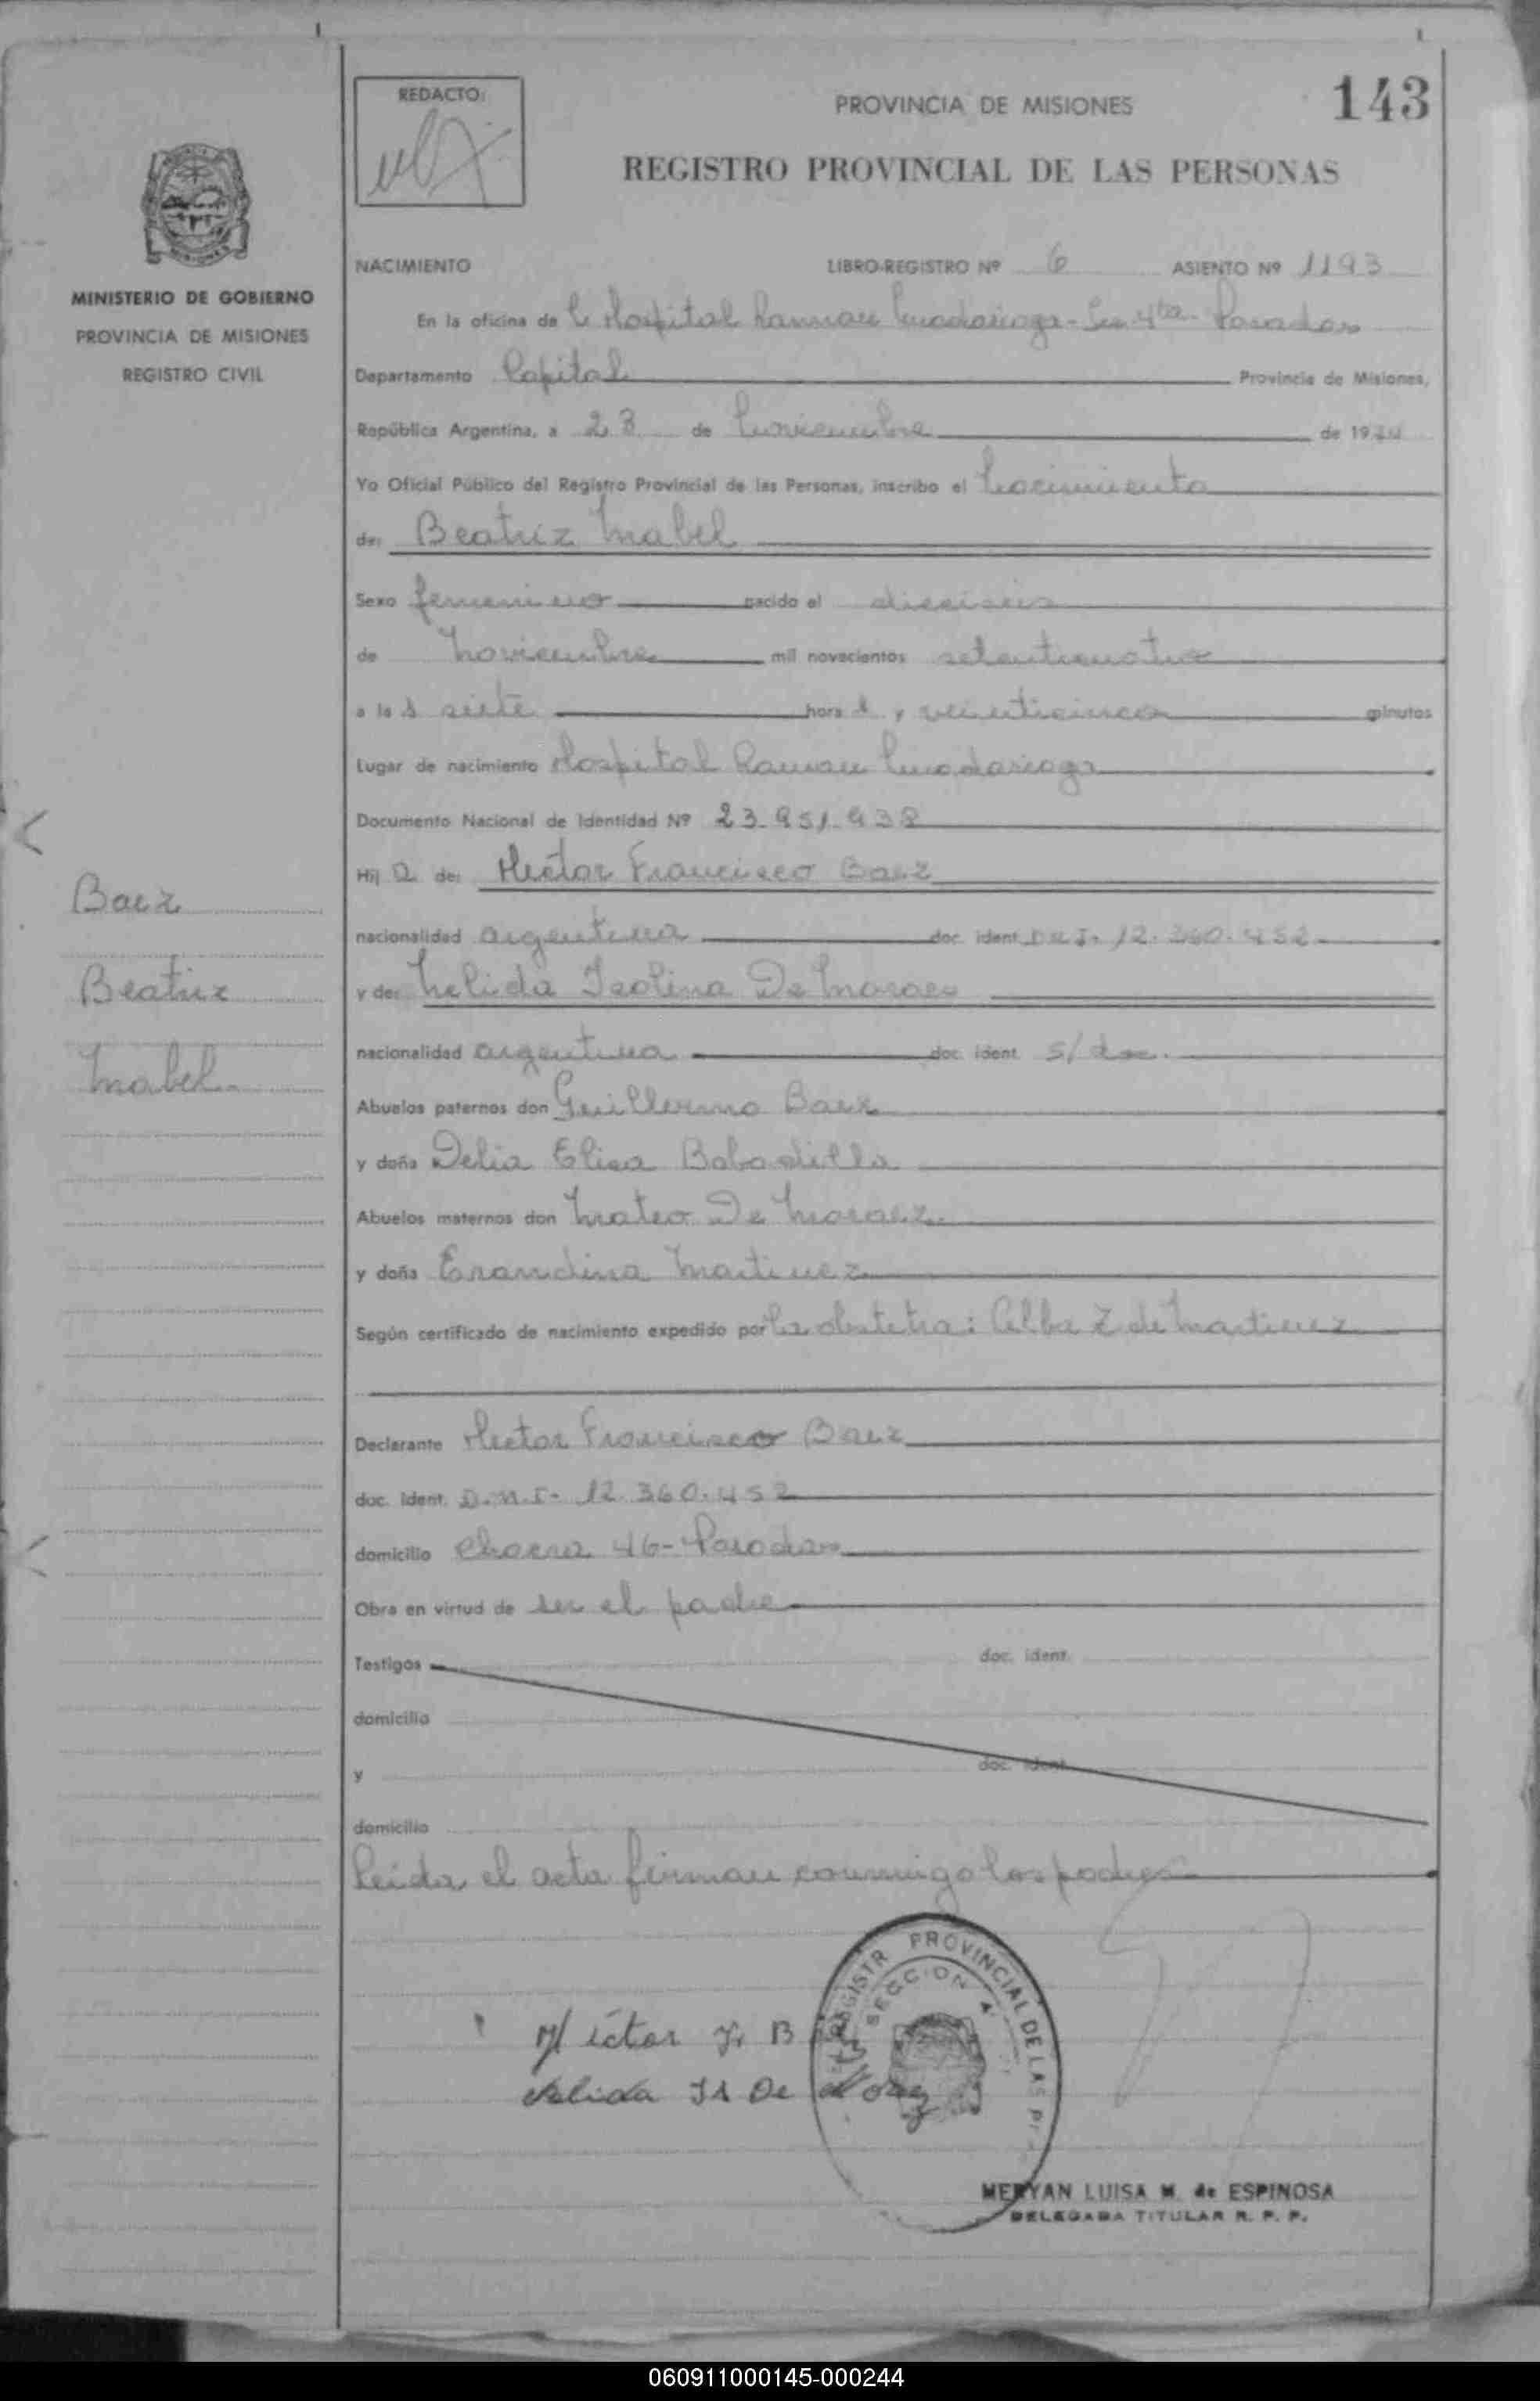 143
REDACTO:
PROVINCIA DE MISIONES
REGISTRO PROVINCIAL DE LAS PERSONAS
MINISTERIO DE GOBIERNO
PROVINCIA DE MISIONES
REGISTRO CIVIL
NACIMIENTO LIBRO-REGISTRO Nº 6 ASIENTO Nº 1193
En la oficina de Hospital Ramon Madariaga - Sec 4ta Posadas
Departamento Capital Provincia de Misiones,
República Argentina, a 23 de Noviembre de 19
Yo Oficial Público del Registro Provincial de las Personas, inscribo el Nacimiento
de: Beatriz Mabel
Sexo femenino nacido el dieciseis
de Noviembre mil novecientos setenticuatro
a las siete horas y veinticinco minutos
Lugar de nacimiento Hospital Ramon Madariaga
Documento Nacional de Identidad Nº 23.951.938
Hija de: Hector Francisco Baez
nacionalidad argentina doc. ident. D.N.I. 12.360.452
y de: Nelida Isolina De Moraes
nacionalidad argentina doc. ident. s/doc.
Abuelos paternos don Guillermo Baez
y doña Delia Elisa Bobadilla
Abuelos maternos don Mateo De Moraez
y doña Erandina Martinez
Según certificado de nacimiento expedido por La obstetra: Alba Z de Martinez
Declarante Hector Francisco Baez
doc. ident. D.N.I. 12.360.452
domicilio Chacra 46 - Posadas
Obra en virtud de ser el padre
Testigos doc. ident.
domicilio
y doc. ident.
domicilio
Leida el acta firman conmigo los padres
Baez
Beatriz
Mabel
REGISTR PROVINCIAL DE LAS P
SECCION 4
Héctor F. B
Nelida Is De Moraez
MERYAN LUISA M. de ESPINOSA
DELEGADA TITULAR R. P. P.
060911000145-000244